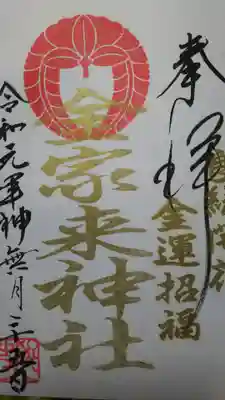 奉拝
金運招福
金家来神社
令和元年神無月二十五日